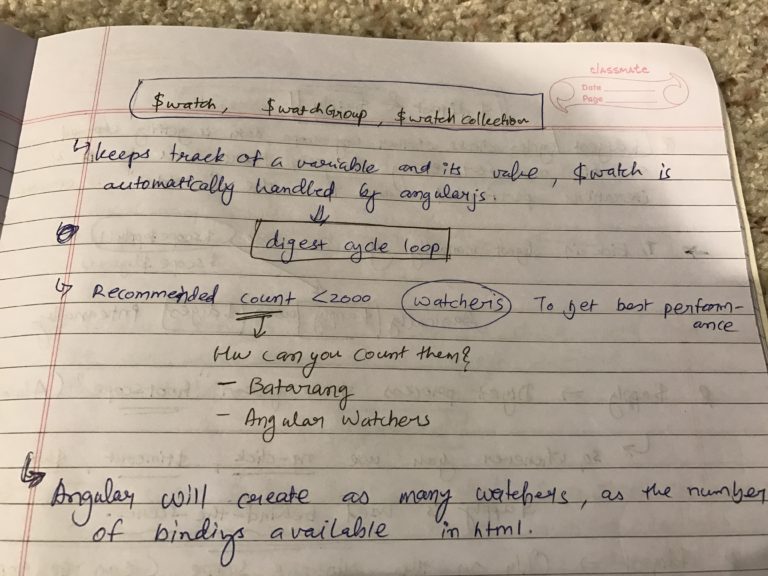 classmate
Date
Page
$watch, $watchGroup, $watchcollection
↳ keeps track of a variable and its value, $watch is
automatically handled by angularjs.
⇓
digest cycle loop
↳ Recommended count <2000 watchers To get best perform-
ance
↓
How can you count them?
- Batarang
- Angular Watchers
↳
Angular will create as many watchers, as the number
of bindings available in html.